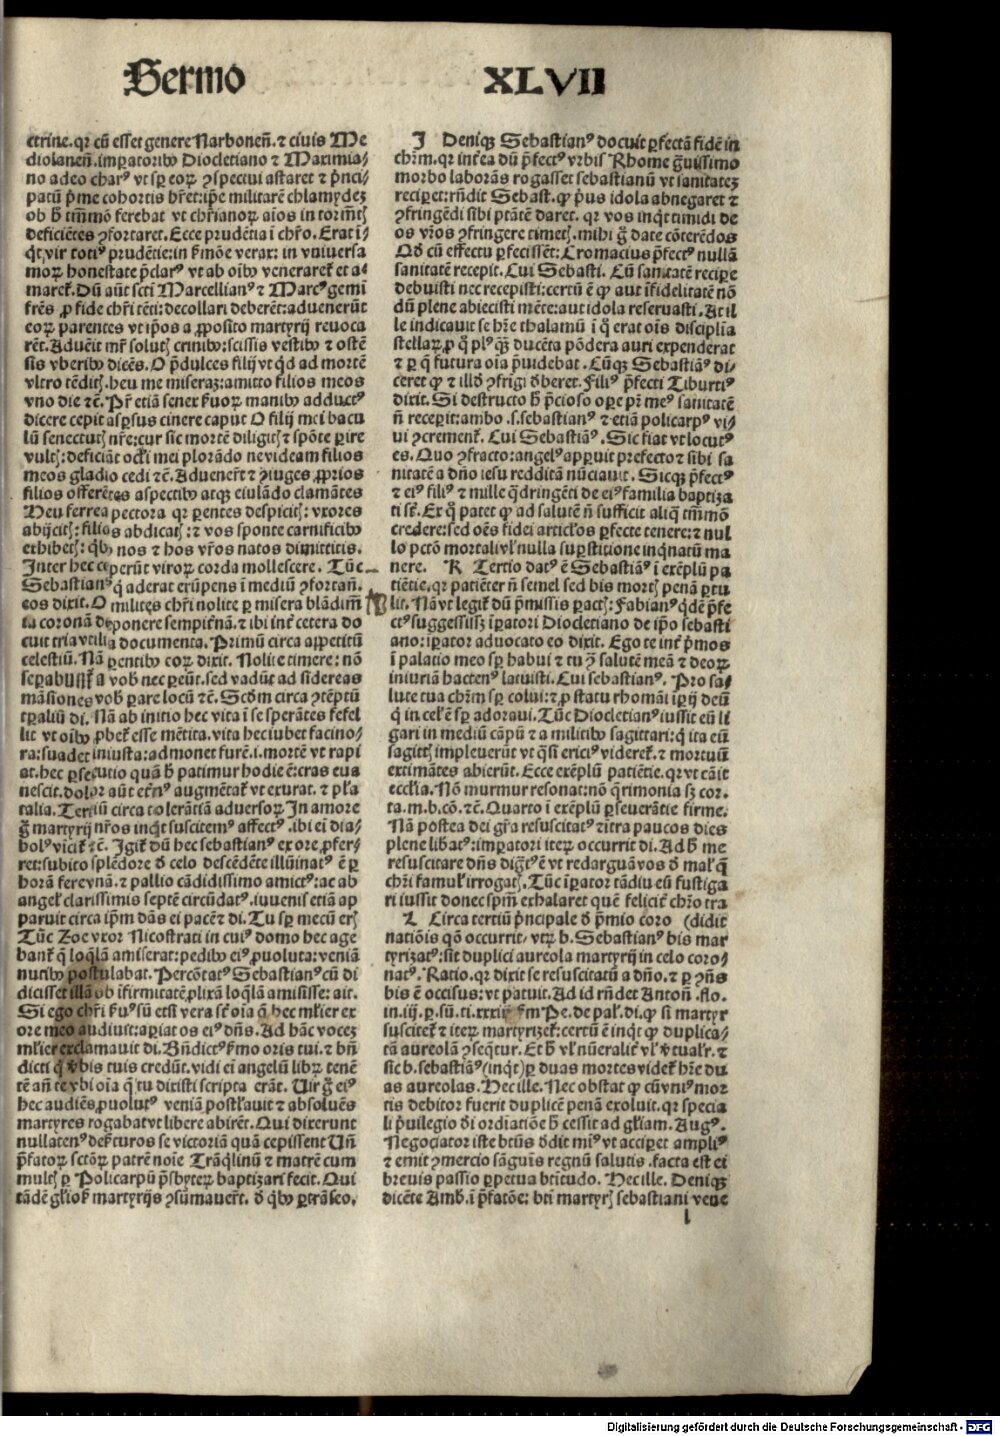 Sermo XLVII
ctrine. qr cū esset genere Narbonen̄. ⁊ civis Me
diolanen̄. imꝑatoribꝰ Diocletiano ⁊ Maximia/
no adeo charꝰ vt sꝑ eoꝝ ꝯspectui astaret ⁊ p̄nci/
patū p̄me cohortis hr̄et: ip̄e militarē chlamydeꝫ
ob h̄ tm̄mō ferebat vt chr̄ianoꝝ aīos in torm̄tꝭ
deficiētes ꝯfortaret. Ecce prudētia ī chr̄o. Erat ī/
q̄t, vir totiꝰ prudētie: in ẜmōe verax: in vniuersa
moꝝ honestate p̄clarꝰ vt ab oībꝰ veneraret᷑ et a/
maret᷑. Dū aūt scti Marcellianꝰ ⁊ Marcꝰ gemī
fr̄es ꝓ fide chr̄i tēti: decollari deberēt: aduenerūt
eoꝝ parentes vt ip̄os a ꝓposito martyrij reuoca
rēt. Aduēit mr̄ solutꝭ crinibꝰ: scissis vestibꝰ ⁊ ostē
sis vberibꝰ dicēs. O p̄dulces filij vt qd ad mortē
vltro tēditꝭ. heu me miseraꝫ: amitto filios meos
vno die ⁊c̄. Pr̄ etiā senex ẜuoꝝ manibꝰ adductꝰ
dicere cepit asꝑsus cinere caput O filij mei bacu
lū senectutꝭ nr̄e: cur sic mortē diligitꝭ ⁊ spōte ꝑire
vultꝭ: deficiāt oc̄li mei plorādo ne videam filios
meos gladio cedi ⁊c̄. Aduener̄t ⁊ ꝯiuges, ꝓprios
filios offerētes aspectibꝰ atqꝫ eiulādo clamātes
Heu ferrea pectora qr ꝑentes despicitꝭ: vxores
abijcitꝭ: filios abdicatꝭ: ⁊ vos sponte carnificibꝰ
exhibetꝭ: qbꝰ nos ⁊ hos vr̄os natos dimittitis.
Inter hec ceperūt viroꝝ corda mollescere. Tūc
Sebastianꝰ q̄ aderat erūpens ī mediū ꝯfortan̄.
eos dixit. O milites chr̄i nolite ꝑ misera blādim̄
ta coronā deponere sempit̄nā. ⁊ ibi int̄ cetera do
cuit tria vtilia documenta. Primū circa appetitū
celestiū. Nā ꝑentibꝰ eoꝝ dixit. Nolite timere: nō
a vob nec ꝑeūt. sed vadūt ad sidereas
māsiones vob ꝑare locū ⁊c̄. Scd̄m circa ꝯtēptū
tꝑaliū di. Nā ab initio hec vita ī se sperātes fefel
lit vt oībꝰ ꝓbet᷑ esse mētita. vita hec iubet facino/
ra: suadet iniusta: admonet furē .i. mortē vt rapi
at. hec ꝑsecutio quā h̄ patimur hodie ē: cras eua
nescit. dolor aūt et̄nꝰ augmētat᷑ vt exurat. ⁊ pla
talia. Tertiū circa tolerātiā aduersoꝝ In amore
g̊ martyrij nr̄os inqt suscitemꝰ affectꝰ. ibi ei dia/
bolꝰ vicit᷑ ⁊c̄. Igit᷑ dū hec sebastianꝰ ex ore ꝓfer/
ret: subito splēdore d̄ celo descēdēte illūinatꝰ ē ꝑ
horā fere vnā. ⁊ pallio cādidissimo amictꝰ: ac ab
angel᷑ clarissimis septē circūdatꝰ. iuuenis etiā ap
paruit circa ip̄m dās ei pacē ⁊ di. Tu sꝑ mecū erꝭ
Tūc Zoe vxor Nicostrati in cuiꝰ domo hec age
bant᷑ q̄ loq̄lā amiserat: pedibꝰ eiꝰ ꝓuoluta: veniā
nutibꝰ postulabat. Percōtatꝰ Sebastianꝰ cū di
dicisset illā ob īfirmitatē, ꝓlixā loq̄lā amisisse: ait.
Si ego chr̄i ẜuꝰ sū etsi vera st̄ oīa q̄ hec ml̄ier ex
ore meo audiuit: aꝑiat os eiꝰ dn̄s. Ad hāc voceꝫ
ml̄ier exclamauit di. Bn̄dictꝰ ẜmo oris tui. ⁊ bn̄
dicti q̄ v̄bis tuis credūt. vidi ei angelū libꝝ tenē
tē an̄ te vbi oīa q̄ tu dixisti scripta erāt. Vir g̊ eiꝰ
hec audiēs, ꝓuolutꝰ veniā postl᷑auit ⁊ absoluēs
martyres rogabat vt libere abirēt. Qui dixerunt
nullatenꝰ deẜturos se victoriā quā cepissent Un̄
p̄fatoꝝ sctōꝝ patrē noīe Trāq̄linū ⁊ matrē cum
multꝭ ꝑ Policarpū p̄sbyteꝝ baptizari fecit. Qui
tādē gl̄ioẜ martyrijs ꝯsūmauer̄t. d̄ qbꝰ ꝑtrāseo.
I Deniqꝫ Sebastianꝰ docuit ꝑfectā fidē in
chr̄m. qr int̄ea dū p̄fectꝰ vrbis Rhome g̊uissimo
morbo laborās rogasset sebastianū vt sanitateꝫ
reciꝑet: rn̄dit Sebast. ꝙ pꝰus idola abnegaret ⁊
ꝯfringēdi sibi ptātē daret. qr vos inqt timidi de
os vr̄os ꝯfringere timetꝭ. mihi g̊ date cōterēdos
Qd̄ cū effectu ꝑfecissēt: Cromacius p̄fectꝰ nullā
sanitatē recepit. Cui Sebasti. Cū sanitatē reciꝑe
debuisti nec recepisti: certū ē ꝙ aut īfidelitatē nō
dū plene abiecisti mēte: aut idola reseruasti. At il
le indicauit se hr̄e thalamū ī q̊ erat oīs disciplīa
stellaꝝ, ꝓ q̊ plꝰq̄ꝫ ducēta pōdera auri expenderat
⁊ ꝑ q̄ futura oīa p̄uidebat. Cūqꝫ Sebastiāꝰ di/
ceret ꝙ ⁊ illd̄ ꝯfrīgi d̄beret. Filiꝰ p̄fecti Tiburtiꝰ
dixit. Si destructo h̄ p̄cioso oꝑe pr̄ meꝰ sanitatē
n̄ receꝑit: ambo .s. sebastianꝰ ⁊ etiā policarpꝰ vi/
ui ꝯcrement᷑. Cui Sebastiāꝰ. Sic fiat vt locutꝰ
es. Quo ꝯfracto: angelꝰ apparuit prefecto ⁊ sibi sa
nitatē a dn̄o iesu redditā nūciauit. Sicqꝫ p̄fectꝰ
⁊ eiꝰ filiꝰ ⁊ mille q̄dringēti de eiꝰ familia baptiza
ti st̄. Ex q̊ patet ꝙ ad salutē n̄ sufficit aliq̄ tm̄mō
credere: sed oēs fidei articl᷑os ꝑfecte tenere: ⁊ nul
lo pctō mortali vl᷑ nulla suꝑstitione inq̄natū ma
nere. K Tertio datꝰ ē Sebastiāꝰ ī exēplū pa
tiētie. qr patiēter n̄ semel sed bis mortꝭ penā ꝑtu
lit. Nā vt legit᷑ dū p̄missis ꝑactꝭ: Fabianꝰ qdē p̄fe
ctꝰ suggessisꝫ īꝑatori Diocletiano de ip̄o sebasti
ano: īꝑator aduocato eo dixit. Ego te int̄ p̄mos
ī palatio meo sꝑ habui ⁊ tu ꝯ̄ salutē meā ⁊ deoꝝ
iniuriā hactenꝰ latuisti. Cui sebastianꝰ. Pro sa/
lute tua chr̄m sꝑ colui: ⁊ ꝓ statu rhomāi īꝑij deū
q̄ in cel᷑ ē sꝑ adoraui. Tūc Diocletianꝰ iussit eū li
gari in mediū cāpū ⁊ a militibꝰ sagittari: q̄ ita eū
sagittꝭ impleuerūt vt q̄si ericiꝰ videret᷑. ⁊ mortuū
extimātes abierūt. Ecce exēplū patiētie. qr vt cāit
eccl̄ia. Nō murmur resonat: nō q̄rimonia sꝫ cor.
ta. m. b. cō. ⁊c̄. Quarto ī exēplū ꝑseuerātie firme.
Nā postea dei gr̄a resuscitatꝰ ⁊ itra paucos dies
plene libatꝰ: imꝑatori iteꝝ occurrit di. Ad h̄ me
resuscitare dn̄s dig̊tꝰ ē vt redarguā vos d̄ mal᷑ q̄
chr̄i famul᷑ irrogatꝭ. Tūc īꝑator tādiu eū fustiga
ri iussit donec spm̄ exhalaret quē felicit᷑ chr̄o tra
L Circa tertiū p̄ncipale d̄ p̄mio coro (didit
natiōis qō occurrit, vtꝝ b. Sebastianꝰ bis mar
tyrizatꝰ: sit duplici aureola martyrij in celo coro/
natꝰ. Ratio. qr dixit se resuscitatū a dn̄o. ⁊ ꝑ ꝯn̄s
bis ē occisus: vt patuit. Ad id rn̄det Antoñ. flo.
in .iij. ꝑ. sū. ti. xxxij. ẜm Pe. de pal᷑. di. ꝙ si martyr
suscitet᷑ ⁊ iteꝝ martyrizet᷑: certū ē inqt ꝙ duplica/
tā aureolā ꝯseqtur. Et h̄ vl᷑ nūeralit᷑ vl᷑ v̄tualr̄. ⁊
sic b. sebastiāꝰ (inqt) ꝑ duas mortes videt᷑ hr̄e du
as aureolas. Hec ille. Nec obstat ꝙ cū vniꝰ mor
tis debitor fuerit duplicē penā exoluit. qr specia
li p̄uilegio d̄i ordīatiōe h̄ cessit ad gl̄iam. Augꝰ.
Negociator iste btūs d̄dit miꝰ vt acciꝑet ampliꝰ
⁊ emit ꝯmercio sāguis regnū salutis. facta est ei
breuis passio ꝑpetua btītudo. Hec ille. Deniqꝫ
dicēte Amb. ī p̄fatōe: bti martyrꝭ sebastiani vene
l
Digitalisierung gefördert durch die Deutsche Forschungsgemeinschaft - DFG